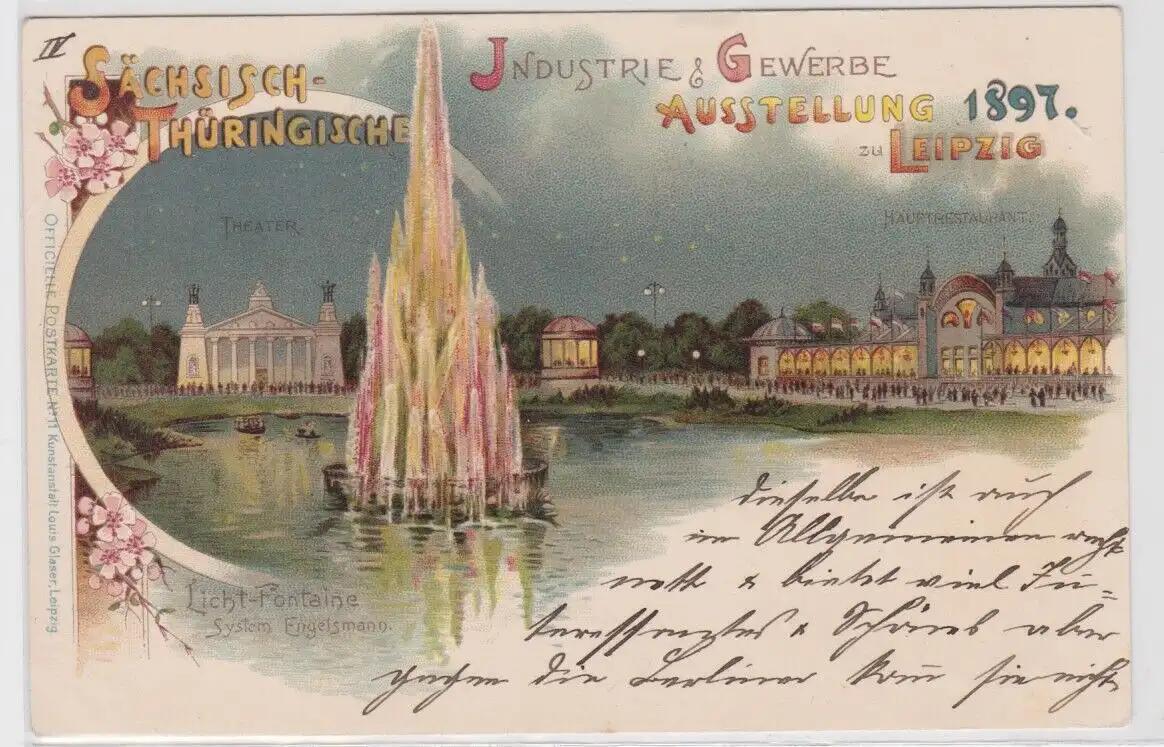 IV
SÄCHSISCH-
THÜRINGISCHE
INDUSTRIE & GEWERBE
AUSSTELLUNG 1897.
ZU LEIPZIG
THEATER
HAUPTRESTAURANT.
OFFICIELLE POSTKARTE No 11 Kunstanstalt Louis Glaser, Leipzig
Licht-Fontaine
System Engelsmann.
dieselbe ist auch
im Allgemeinen recht
nett & bietet viel In-
teressantes & Schönes aber
gegen die Berliner kom̅ sie nicht